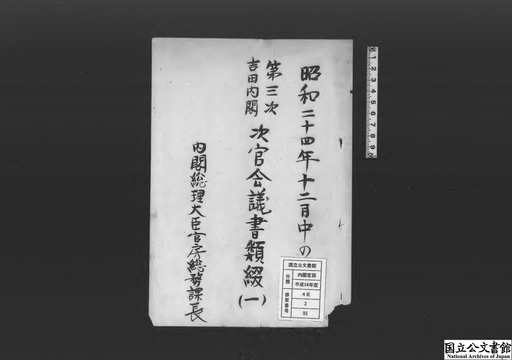 昭和二十四年十二月中の
第三次
吉田内閣
次官会議書類綴
(一)
内閣総理大臣官房総務課長
国立公文書館
分類
内閣官房
平成14年度
排架番号
4E
3
1 2 3 4 5 6 7 8 9
国立公文書館
National Archives of Japan